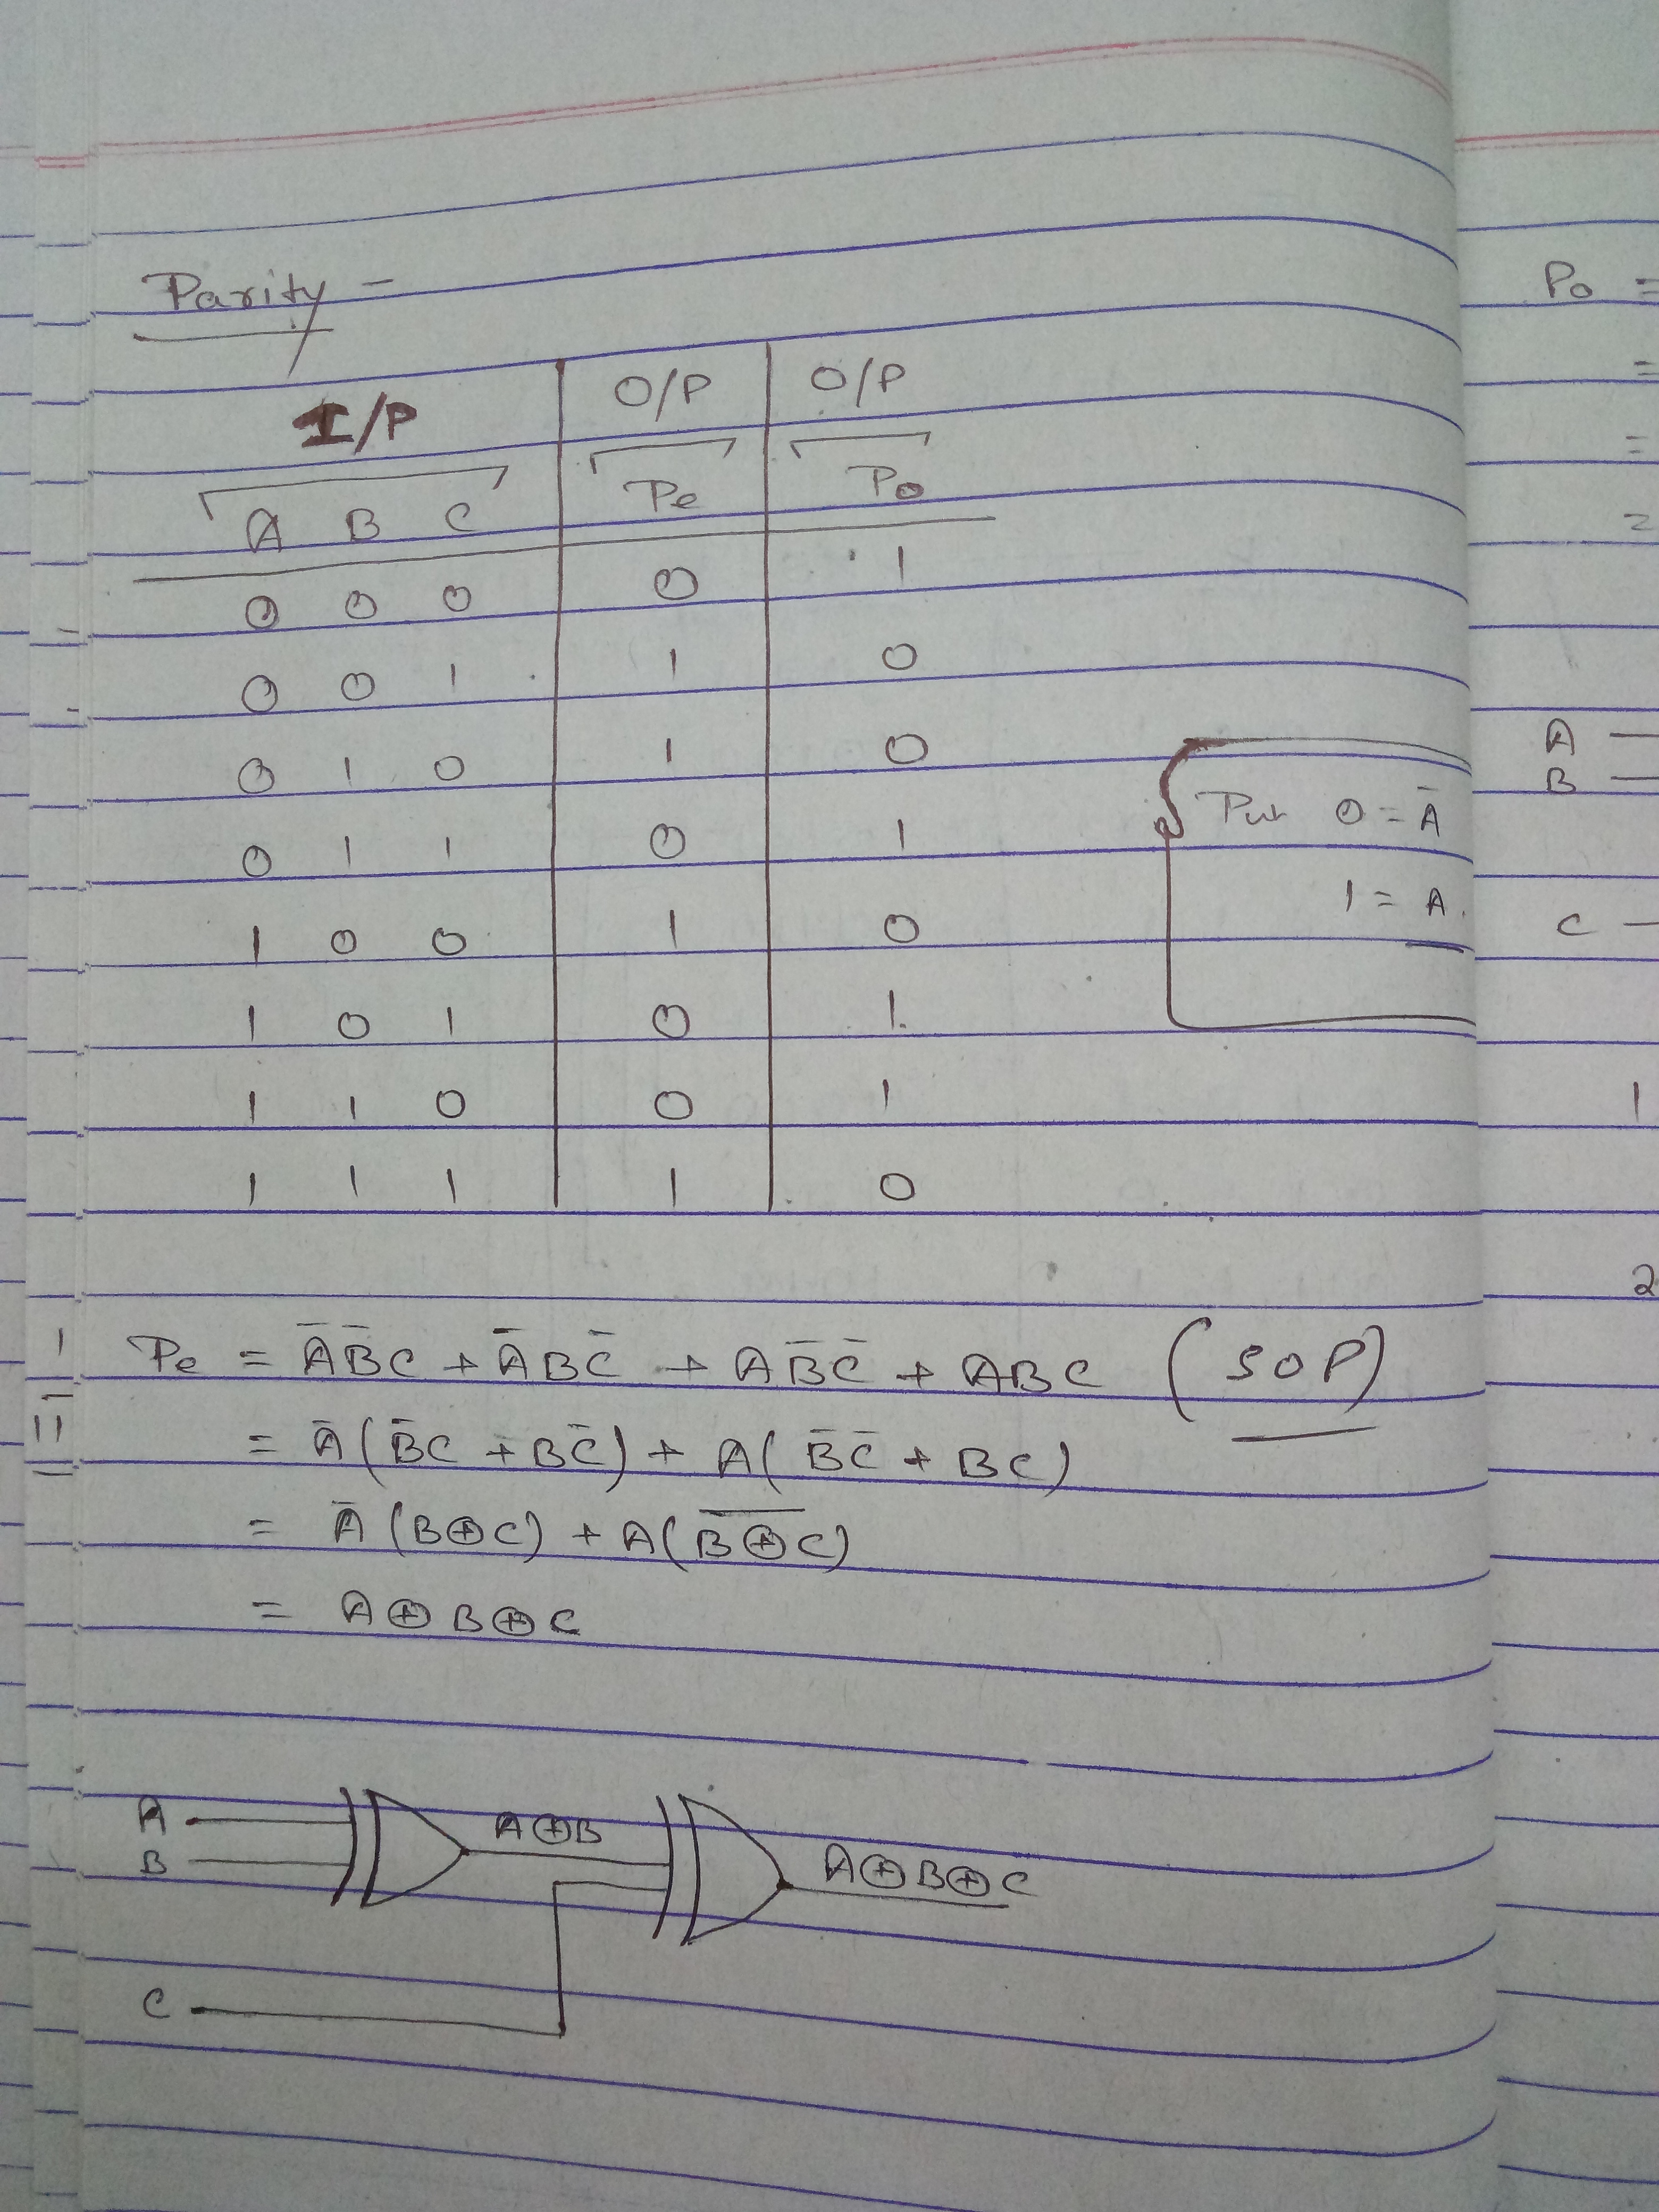 Parity -
I/P O/P O/P
A B C Pe Po
0 0 0 0 1
0 0 1 1 0
0 1 0 1 0
0 1 1 0 1
1 0 0 1 0
1 0 1 0 1
1 1 0 0 1
1 1 1 1 0
Put 0 = A̅
1 = A.
Pe = A̅B̅C + A̅BC̅ + AB̅C̅ + ABC (SOP)
= A̅(B̅C + BC̅) + A(B̅C̅ + BC)
= A̅(B⊕C) + A(B̅⊕̅C̅)
= A⊕B⊕C
A
B
A⊕B
A⊕B⊕C
C
Po =
=
=
=
A
B
C
1
2